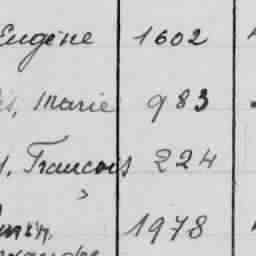 Eugène 1602
Marie 983
François 224
1978